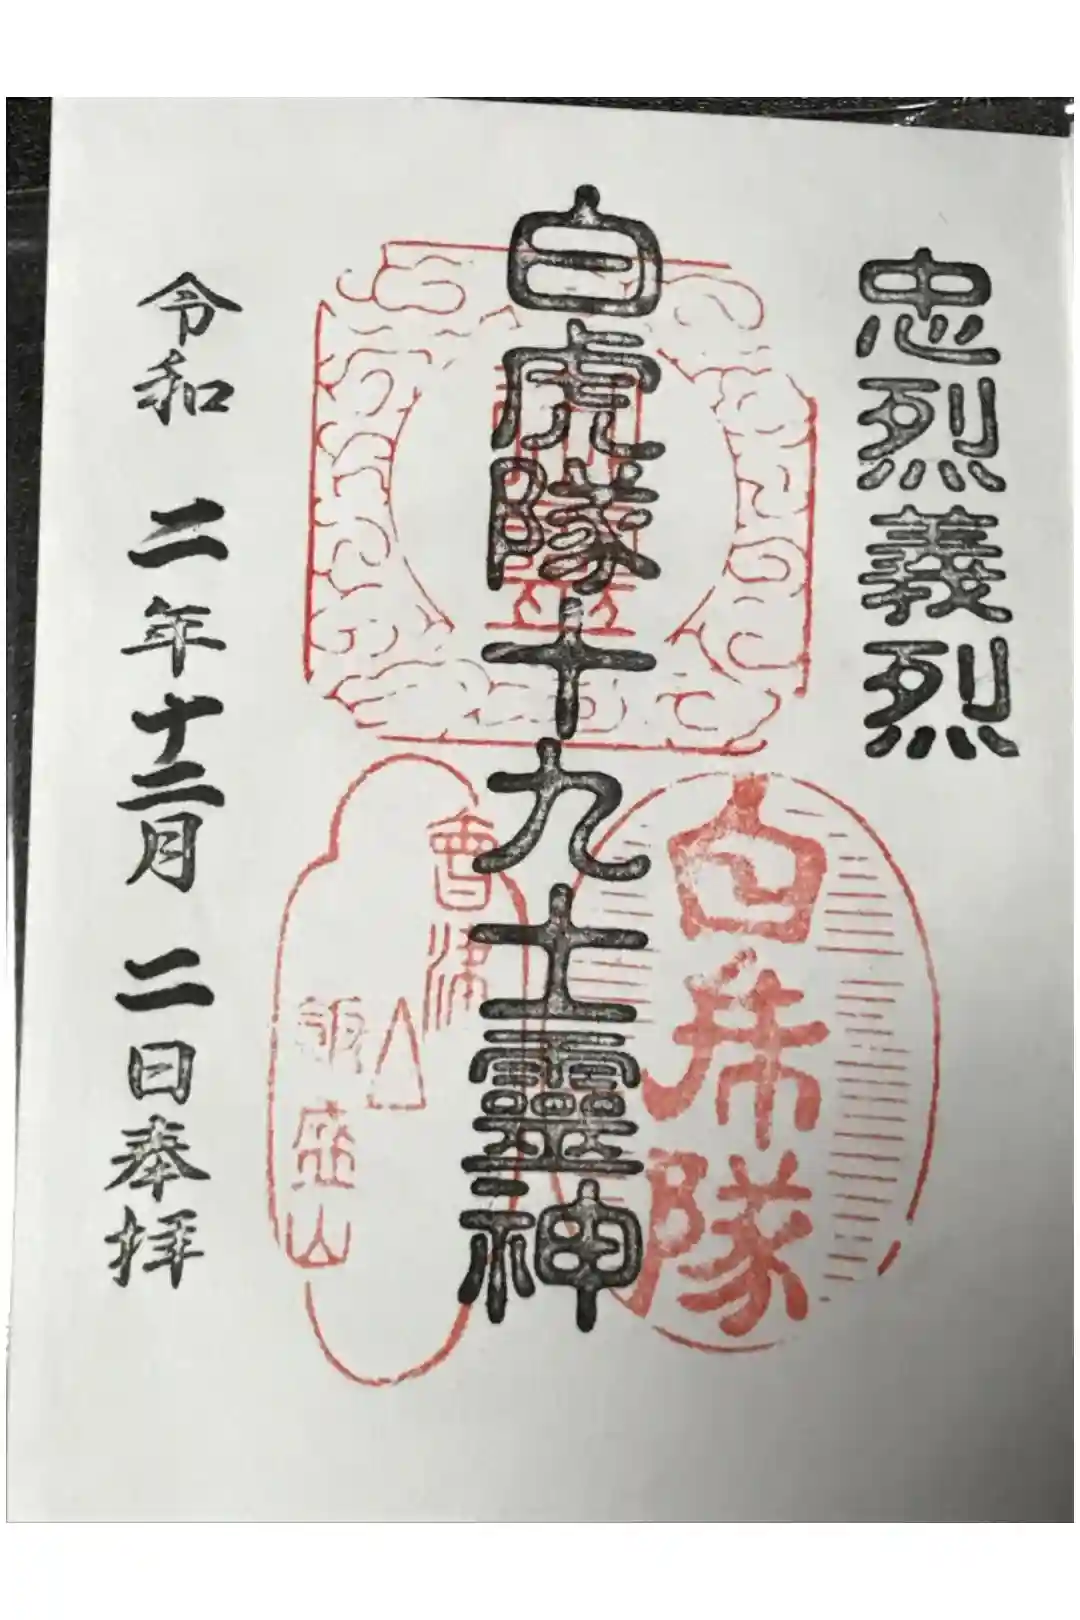 忠烈義烈
白虎隊十九士靈神
白虎隊
會津
飯盛山
令和 二年十二月 二日奉拝